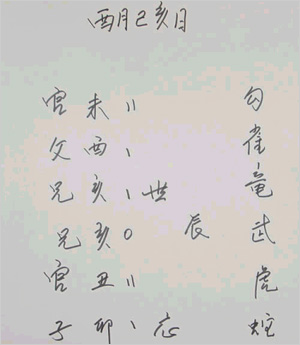 酉月己亥日
官未〃 勾
父酉、 雀
兄亥、世 竜
兄亥O 辰 武
官丑〃 虎
子卯、应 蛇